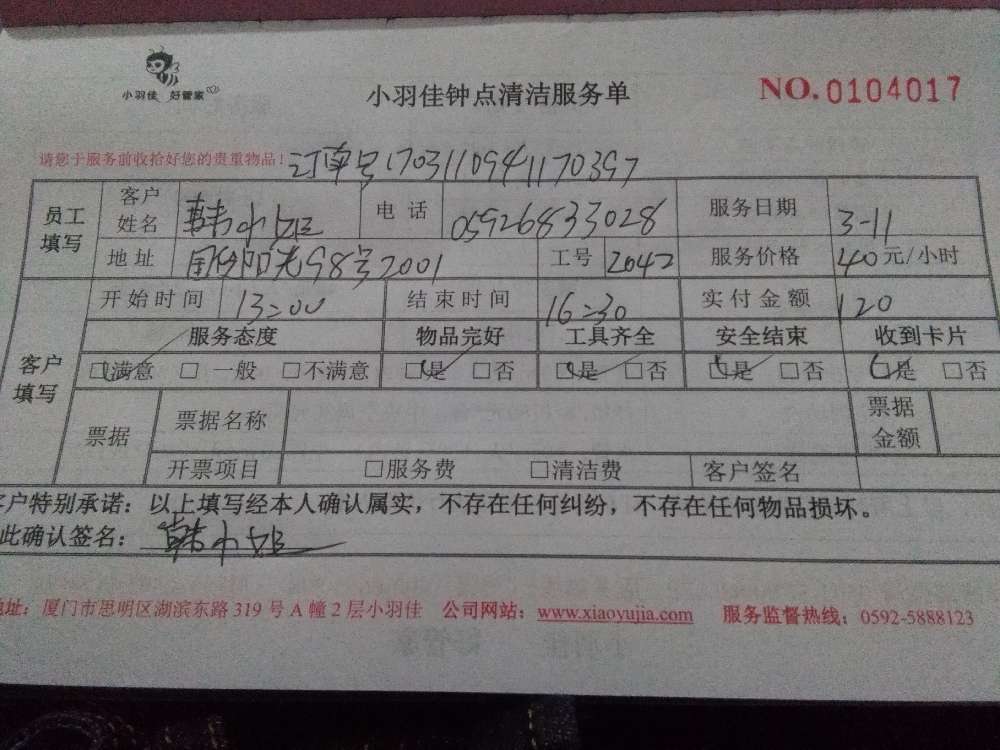 小羽佳 好管家
小羽佳钟点清洁服务单
NO.0104017
请您于服务前收拾好您的贵重物品!
订单号17031109411170397
员工填写 客户姓名 韩小姐 电话 05926833028 服务日期 3-11
地址 阳光98号2001 工号 2042 服务价格 40元/小时
客户填写 开始时间 13:00 结束时间 16:30 实付金额 120
服务态度 物品完好 工具齐全 安全结束 收到卡片
☑满意 □一般 □不满意 ☑是 □否 ☑是 □否 ☑是 □否 ☑是 □否
票据 票据名称 票据金额
开票项目 □服务费 □清洁费 客户签名
客户特别承诺：以上填写经本人确认属实，不存在任何纠纷，不存在任何物品损坏。
此确认签名：韩小姐
地址：厦门市思明区湖滨东路319号A幢2层小羽佳 公司网站：www.xiaoyujia.com 服务监督热线：0592-5888123